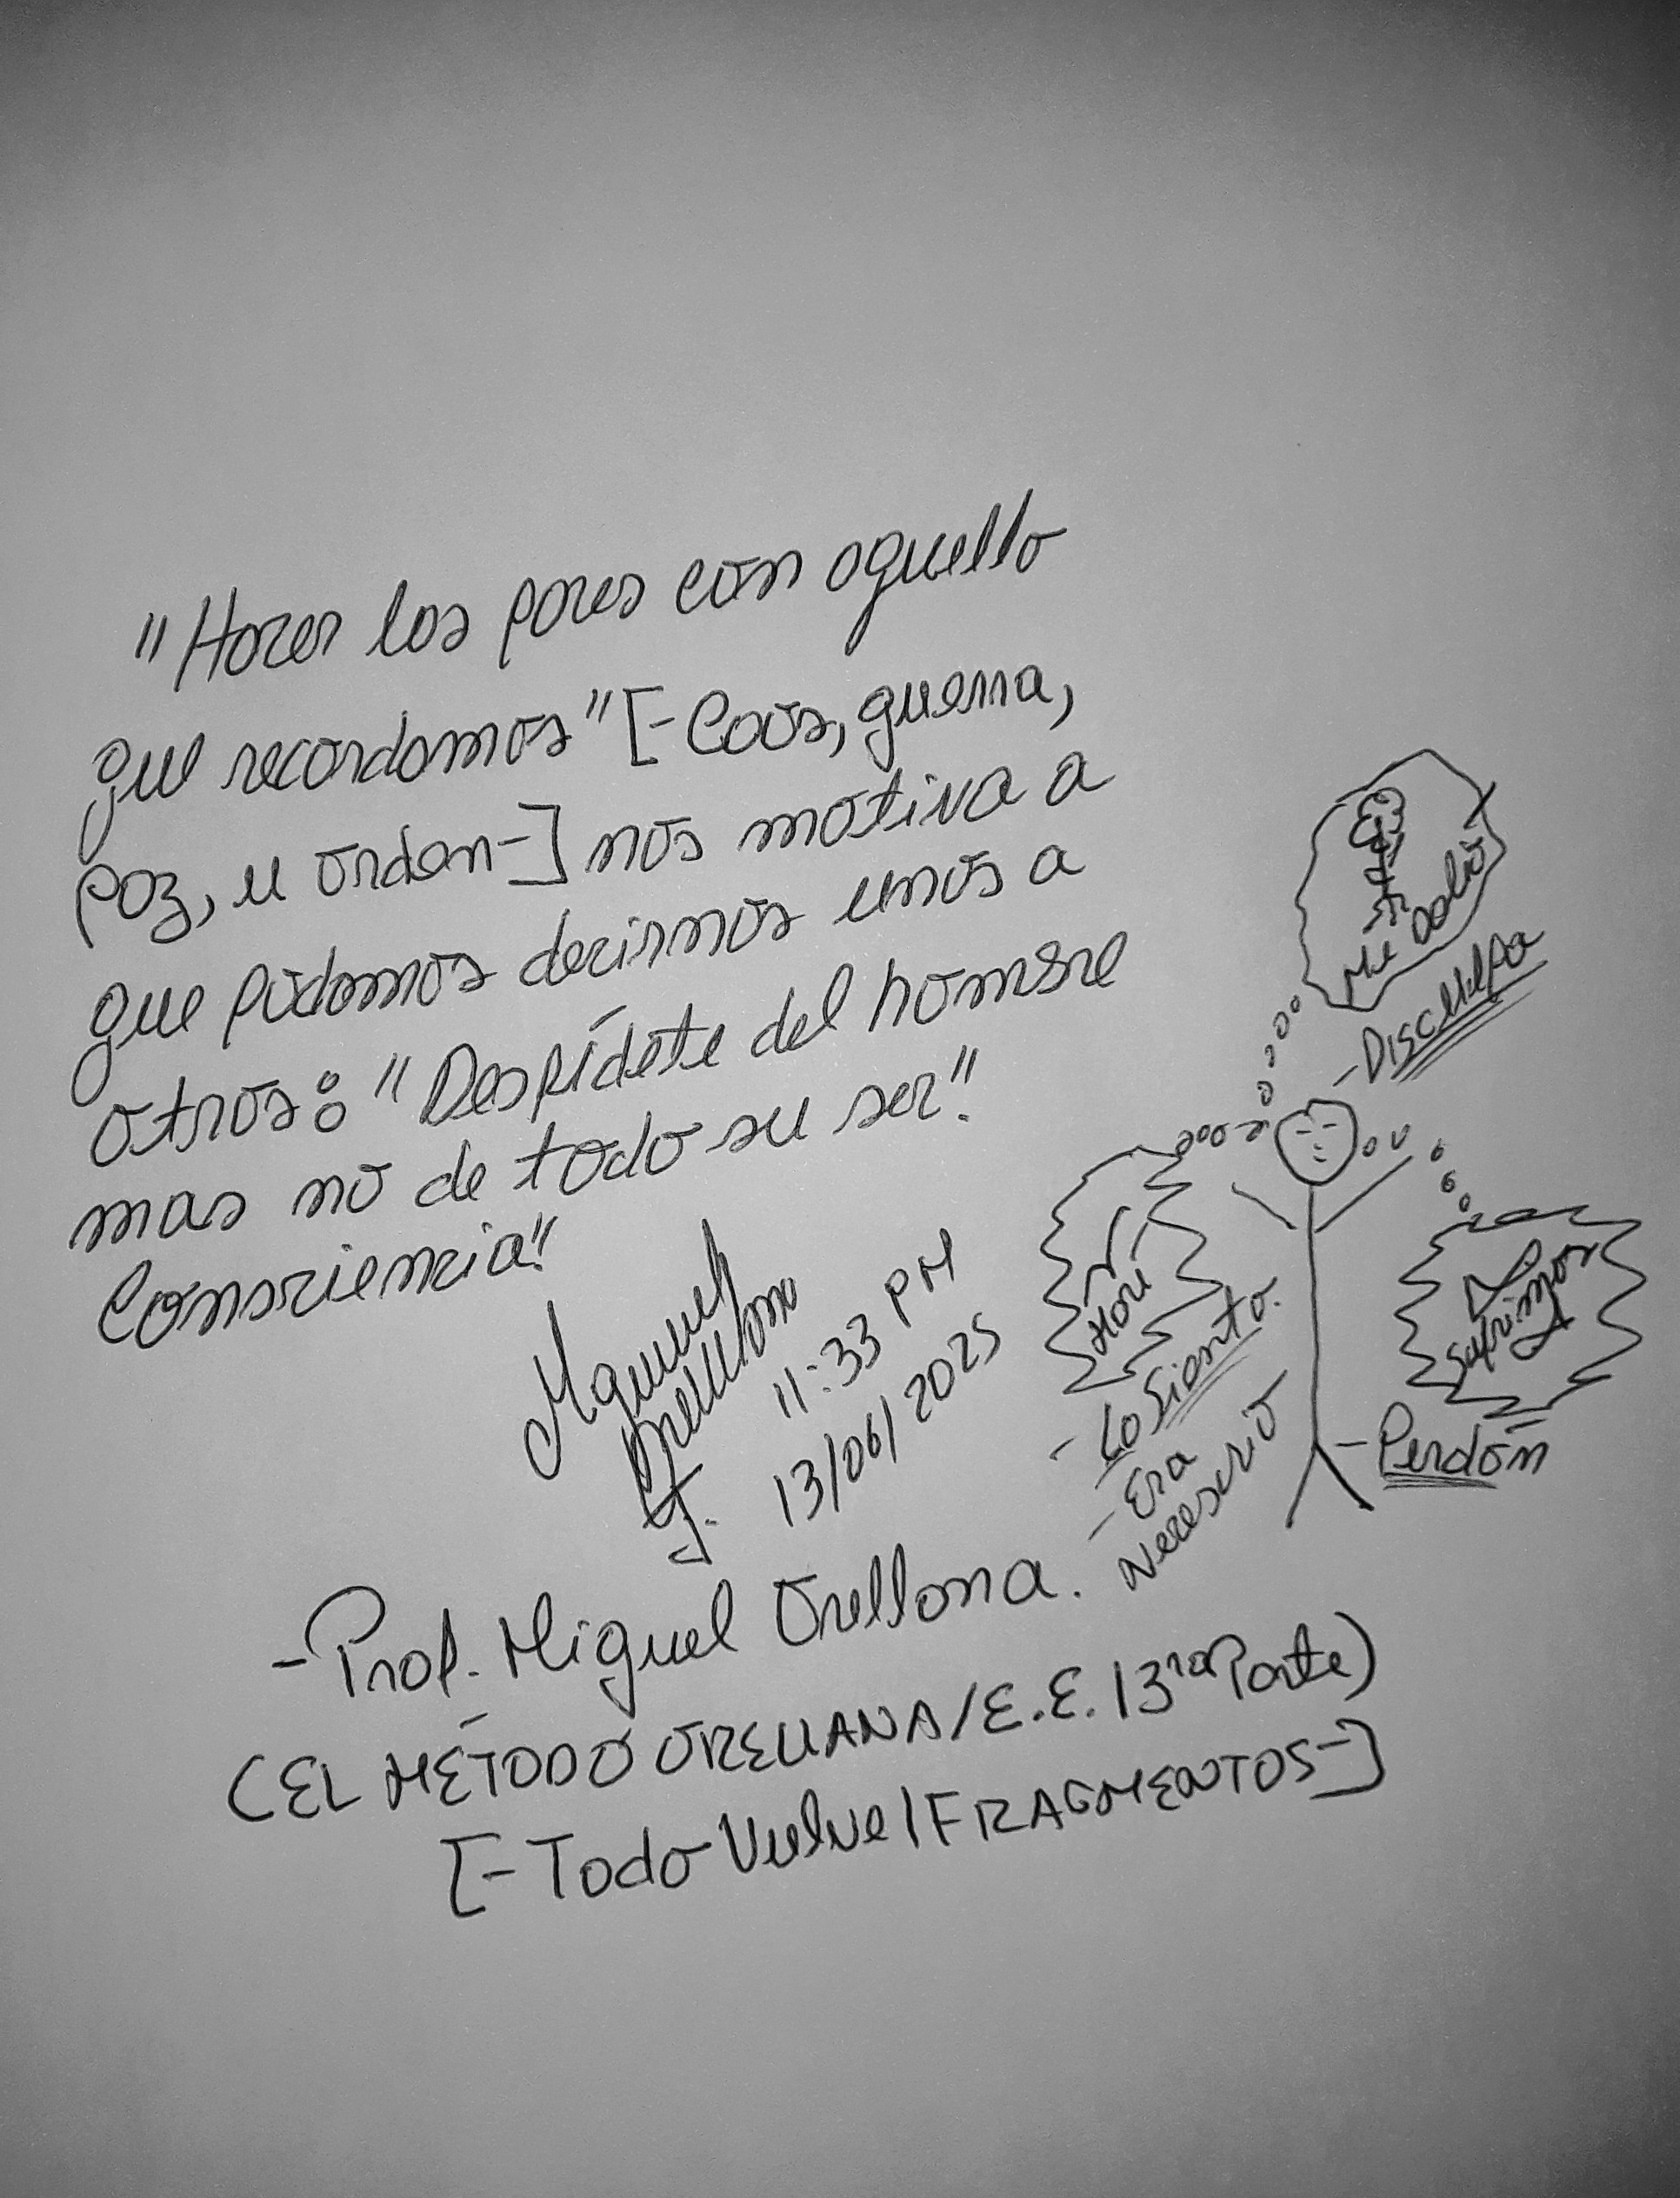 "Hacer las paces con aquello
que recordamos" [-Caos, guerra,
paz, u orden-] nos motiva a
que podamos decirnos unos a
otros: "Despídete del hombre
mas no de todo su ser".
Consciencia".
Miguel
Orellana
J.
11:33 PM
13/06/2025
Me Dolió
-Disculpa
Morí
-Lo Siento.
-Era
Necesario
Sufrimos
-Perdón
-Prof. Miguel Orellana.
(EL MÉTODO ORELLANA/E.E./3ra Parte)
[-Todo Vuelve/FRAGMENTOS-]